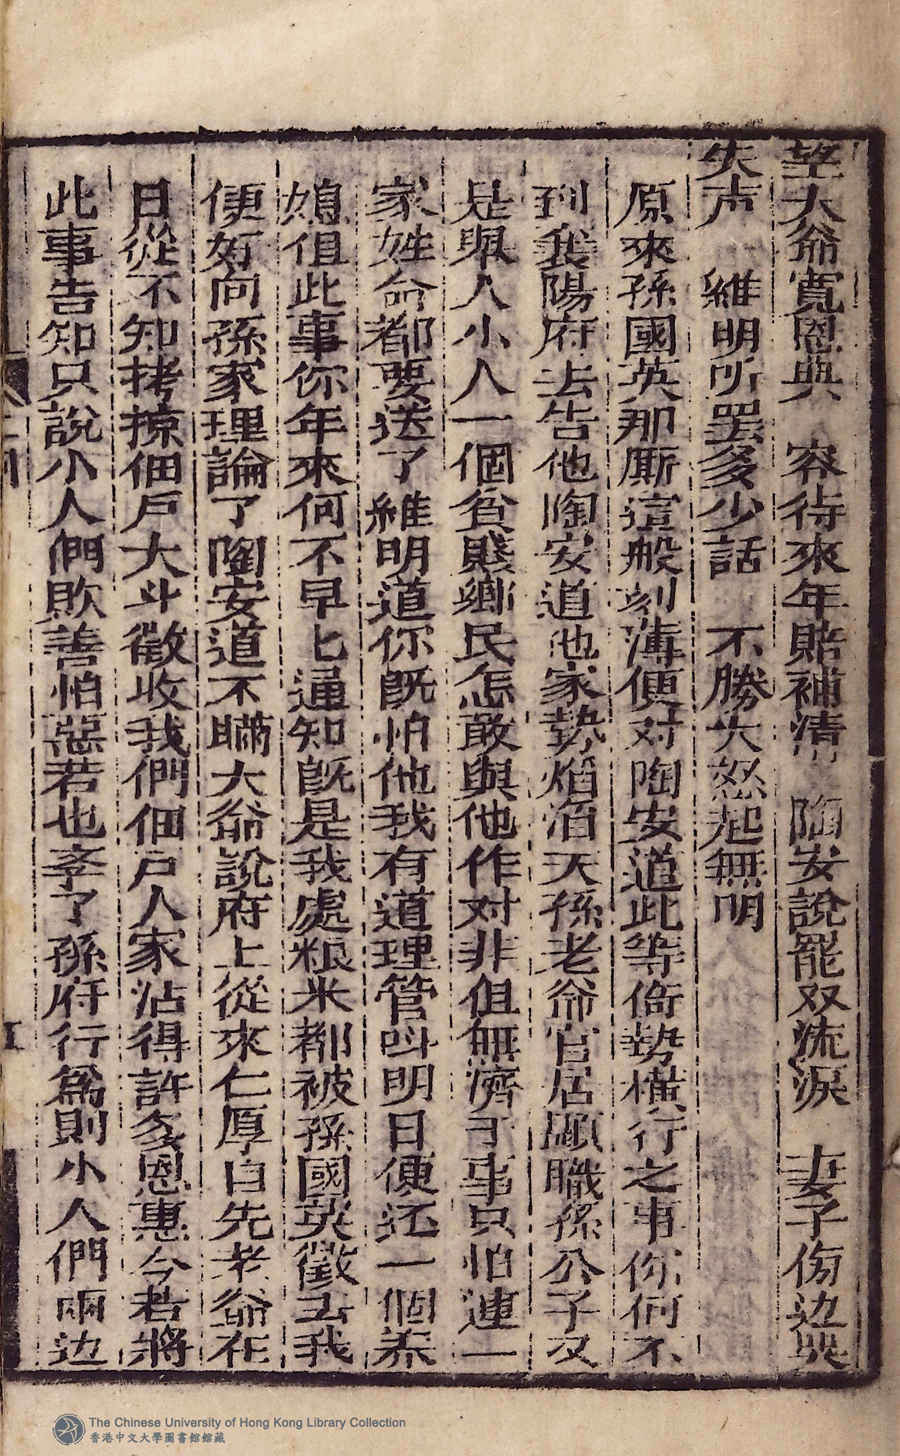 望大爺寬恩典　容待來年賠補清　陶安說罷双流淚　妻子傍边哭
失声　維明听罢多少話　不勝大怒起無明
原來孫國英那厮這般刻薄便对陶安道此等倚勢橫行之事你何不
到我陽府去告他陶安道他家勢焰滔天孫老爺官居顯職孫公子又
是舉人小人一個貧賤鄉民怎敢與他作对非但無濟于事只怕連一
家姓命都要送了維明道你既怕他我有道理管叫明日便还一個
媳但此事你年來何不早匕通知既是我處粮米都被孫國英徵去我
便好向孫家理論了陶安道不瞞大爺說府上從來仁厚自先老爺在
日從不知拷掠佃戶大斗徵收我們佃戶人家沾得許多恩惠今若將
此事告知只說小人們欺善怕惡若也孝了孫府行為則小人們兩边
The Chinese University of Hong Kong Library Collection
香港中文大學圖書館館藏